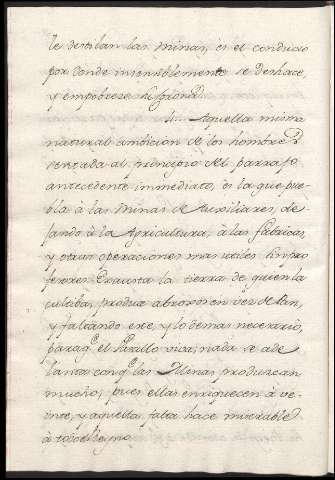 le destilan las minas, es el conducto
por donde insensiblemente se deshace,
y empobrece su
4... Aquella misma
natural ambicion de los hombres
sentada al principio del parrafo
antecedente immediato, es la que pue-
bla à las minas de Auxiliares, de-
jando à la Agricultura, à las fabricas,
y otras operaciones mas utiles sin pro-
fesores. Exausta la tierra de quien la
cultiba, produce abrojos en vez de Pan,
y faltando este, y lo demas necesario,
para q.e el Pueblo viva, nada se ade-
lanta con q.e las Minas produzcan
mucho, pues ellas enriquecen à ve-
inte, y aquella falta hace miserable
à todo el Reyno.